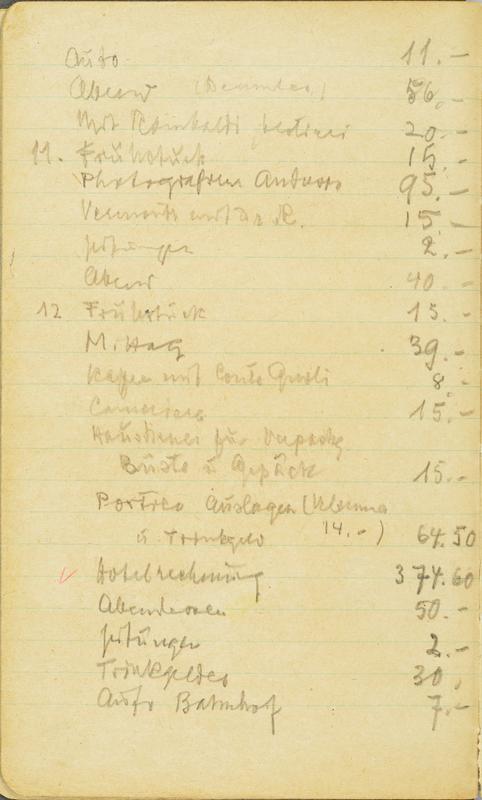 Auto 11.-
Abend 56.-
Mit Rombaldi 20.-
11. Frühstück 15.-
Photografien Anderson 95.-
Vermouth mit Dr. R. 15.-
Zeitungen 2.-
Abend 40.-
12 Frühstück 15.-
Mittag 39.-
Kaffee mit Conte 8.-
Cameriera 15.-
Hausdiener für
Büste u Gepäck 15.-
Portier Auslagen (
u Trinkgeld 14.-) 64.50
Hotelrechnung 374.60
Abendessen 50.-
Zeitungen 2.-
Trinkgelder 30.
Auto Bahnhof 7.-